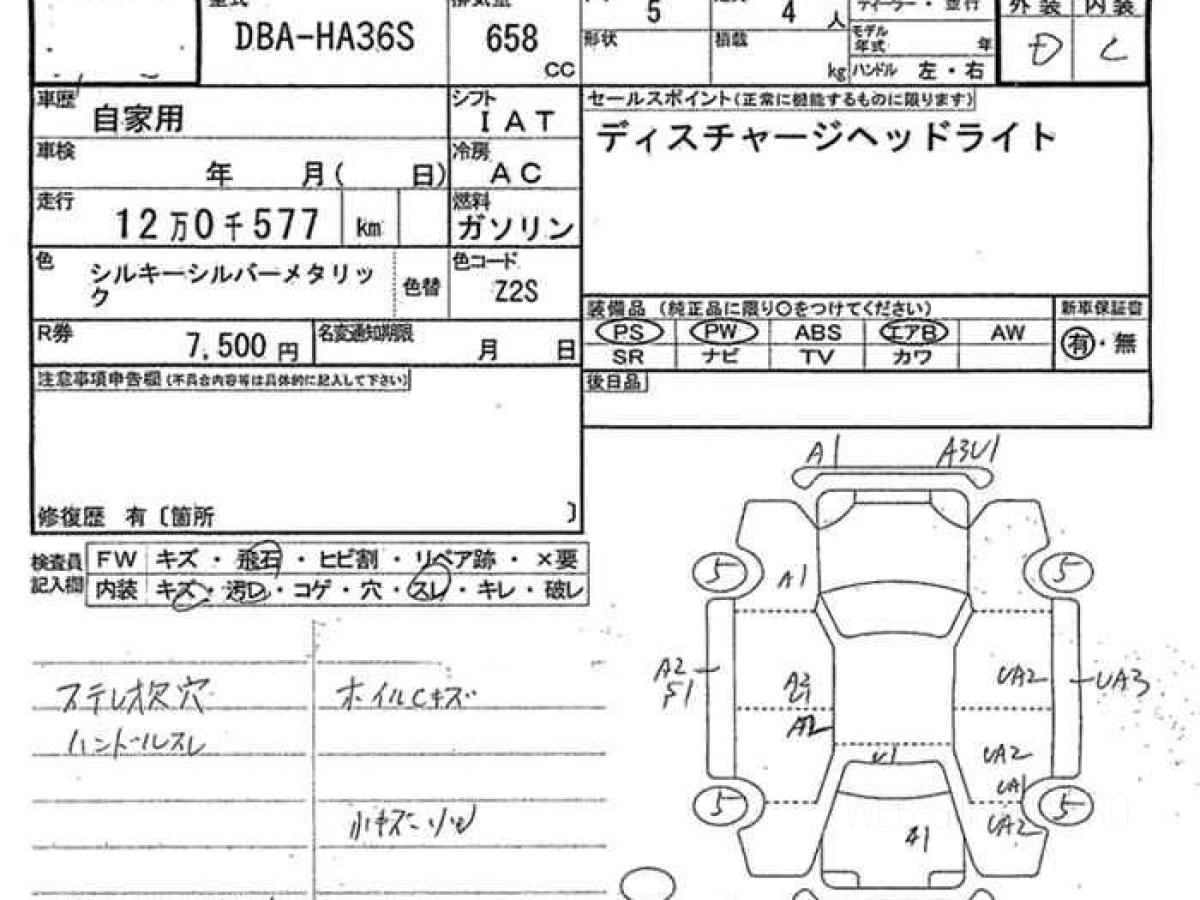 DBA-HA36S
658
CC
5
4 人
形状
積載
kg
モデル
年式
年
ハンドル 左・右
外装 内装
D C
車歴
自家用
シフト
IAT
車検
年 月( 日)
冷房
AC
走行
12万0千577 km
燃料
ガソリン
色
シルキーシルバーメタリッ
ク
色替
色コード
Z2S
R券
7,500 円
名変通知期限
月 日
セールスポイント(正常に機能するものに限ります)
ディスチャージヘッドライト
装備品 (純正品に限り〇をつけてください)
新車保証書
PS PW ABS エアB AW
有・無
SR ナビ TV カワ
後日品
注意事項申告欄(不具合内容等は具体的に記入して下さい)
修復歴 有〔箇所 〕
検査員
記入欄
FW キズ・飛石・ヒビ割・リペア跡・×要
内装 キズ・汚D・コゲ・穴・スレ・キレ・破レ
ステレオ欠穴
ハンドルスレ
ホイルCキズ
小キズ
A1
A3U1
5
5
A1
A2
UA2
UA3
A2
UA2
U1
UA1
5
5
UA2
A1